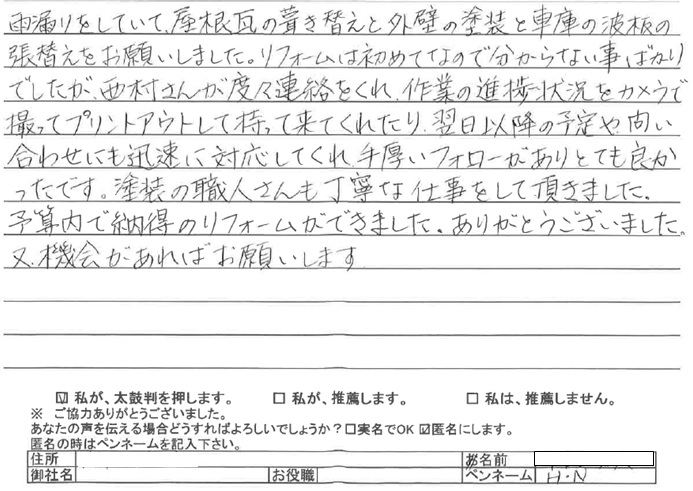 雨漏りをしていて、屋根瓦の葺き替えと外壁の塗装と車庫の波板の
張替えをお願いしました。リフォームは初めてなので分からない事ばかり
でしたが、西村さんが度々連絡をくれ、作業の進捗状況をカメラで
撮ってプリントアウトして持って来てくれたり、翌日以降の予定や、問い
合わせにも迅速に対応してくれ、手厚いフォローがありとても良か
ったです。塗装の職人さんも丁寧な仕事をして頂きました。
予算内で納得のリフォームができました。ありがとうございました。
又、機会があればお願いします
☑ 私が、太鼓判を押します。 □ 私が、推薦します。 □ 私は、推薦しません。
※ ご協力ありがとうございました。
あなたの声を伝える場合どうすればよろしいでしょうか？□実名でOK ☑匿名にします。
匿名の時はペンネームを記入下さい。
住所 お名前
御社名 お役職 ペンネーム H・N